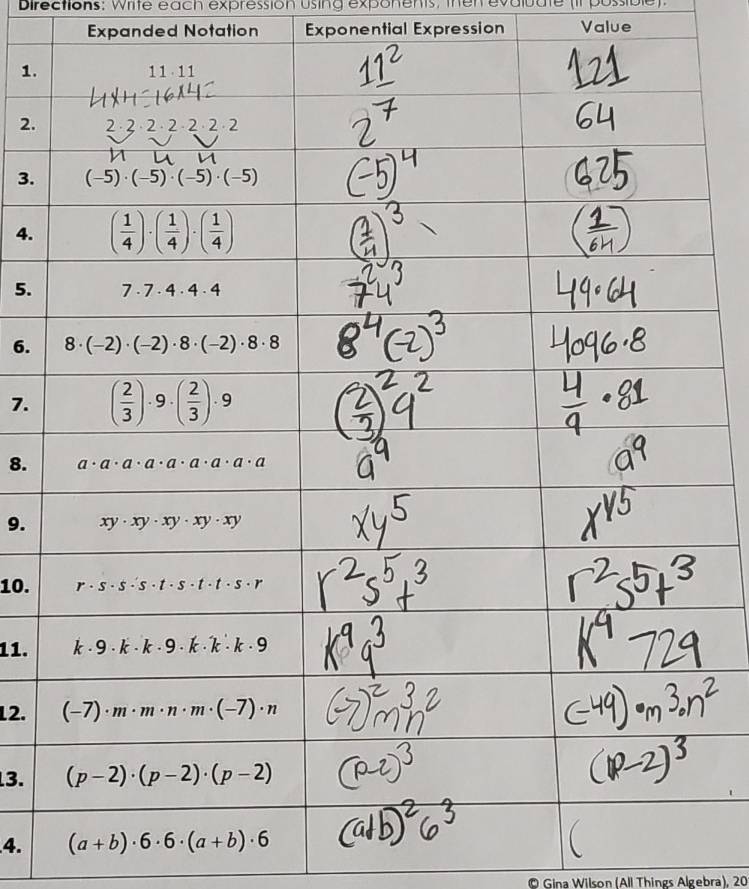 Directions: Write each expression using exponents, then evaluate (if possible).
Expanded Notation Exponential Expression Value
1. 11 · 11 11² 121
4×4=16×4=
2. 2 · 2 · 2 · 2 · 2 · 2 · 2 2⁷ 64
4 4 4
3. (−5) · (−5) · (−5) · (−5) (−5)⁴ 625
4. (1/4) · (1/4) · (1/4) (1/4)³ (1/64)
5. 7 · 7 · 4 · 4 · 4 7²4³ 49·64
6. 8 · (−2) · (−2) · 8 · (−2) · 8 · 8 8⁴(−2)³ 4096·8
7. (2/3) · 9 · (2/3) · 9 (2/3)²9² 4/9 · 81
8. a · a · a · a · a · a · a · a · a a⁹ a⁹
9. xy · xy · xy · xy · xy xy⁵ xy⁵
10. r · s · s · s · t · s · t · t · s · r r²s⁵t³ r²s⁵t³
11. k · 9 · k · k · 9 · k · k · k · 9 K⁹9³ K⁹ 729
12. (−7) · m · m · n · m · (−7) · n (−7)²m³n² (−49)·m³·n²
13. (p − 2) · (p − 2) · (p − 2) (p−2)³ (p−2)³
4. (a + b) · 6 · 6 · (a + b) · 6 (a+b)²6³ (
© Gina Wilson (All Things Algebra), 20